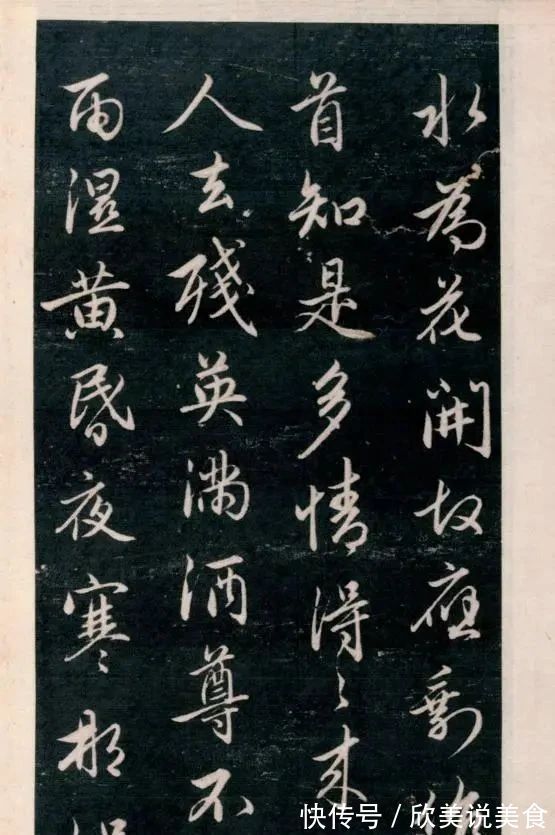 水為花開故應剩
首知是多情得〻來
人去殘英滿酒尊不
雨溼黄昏夜寒那
快传号 / 欣美说美食